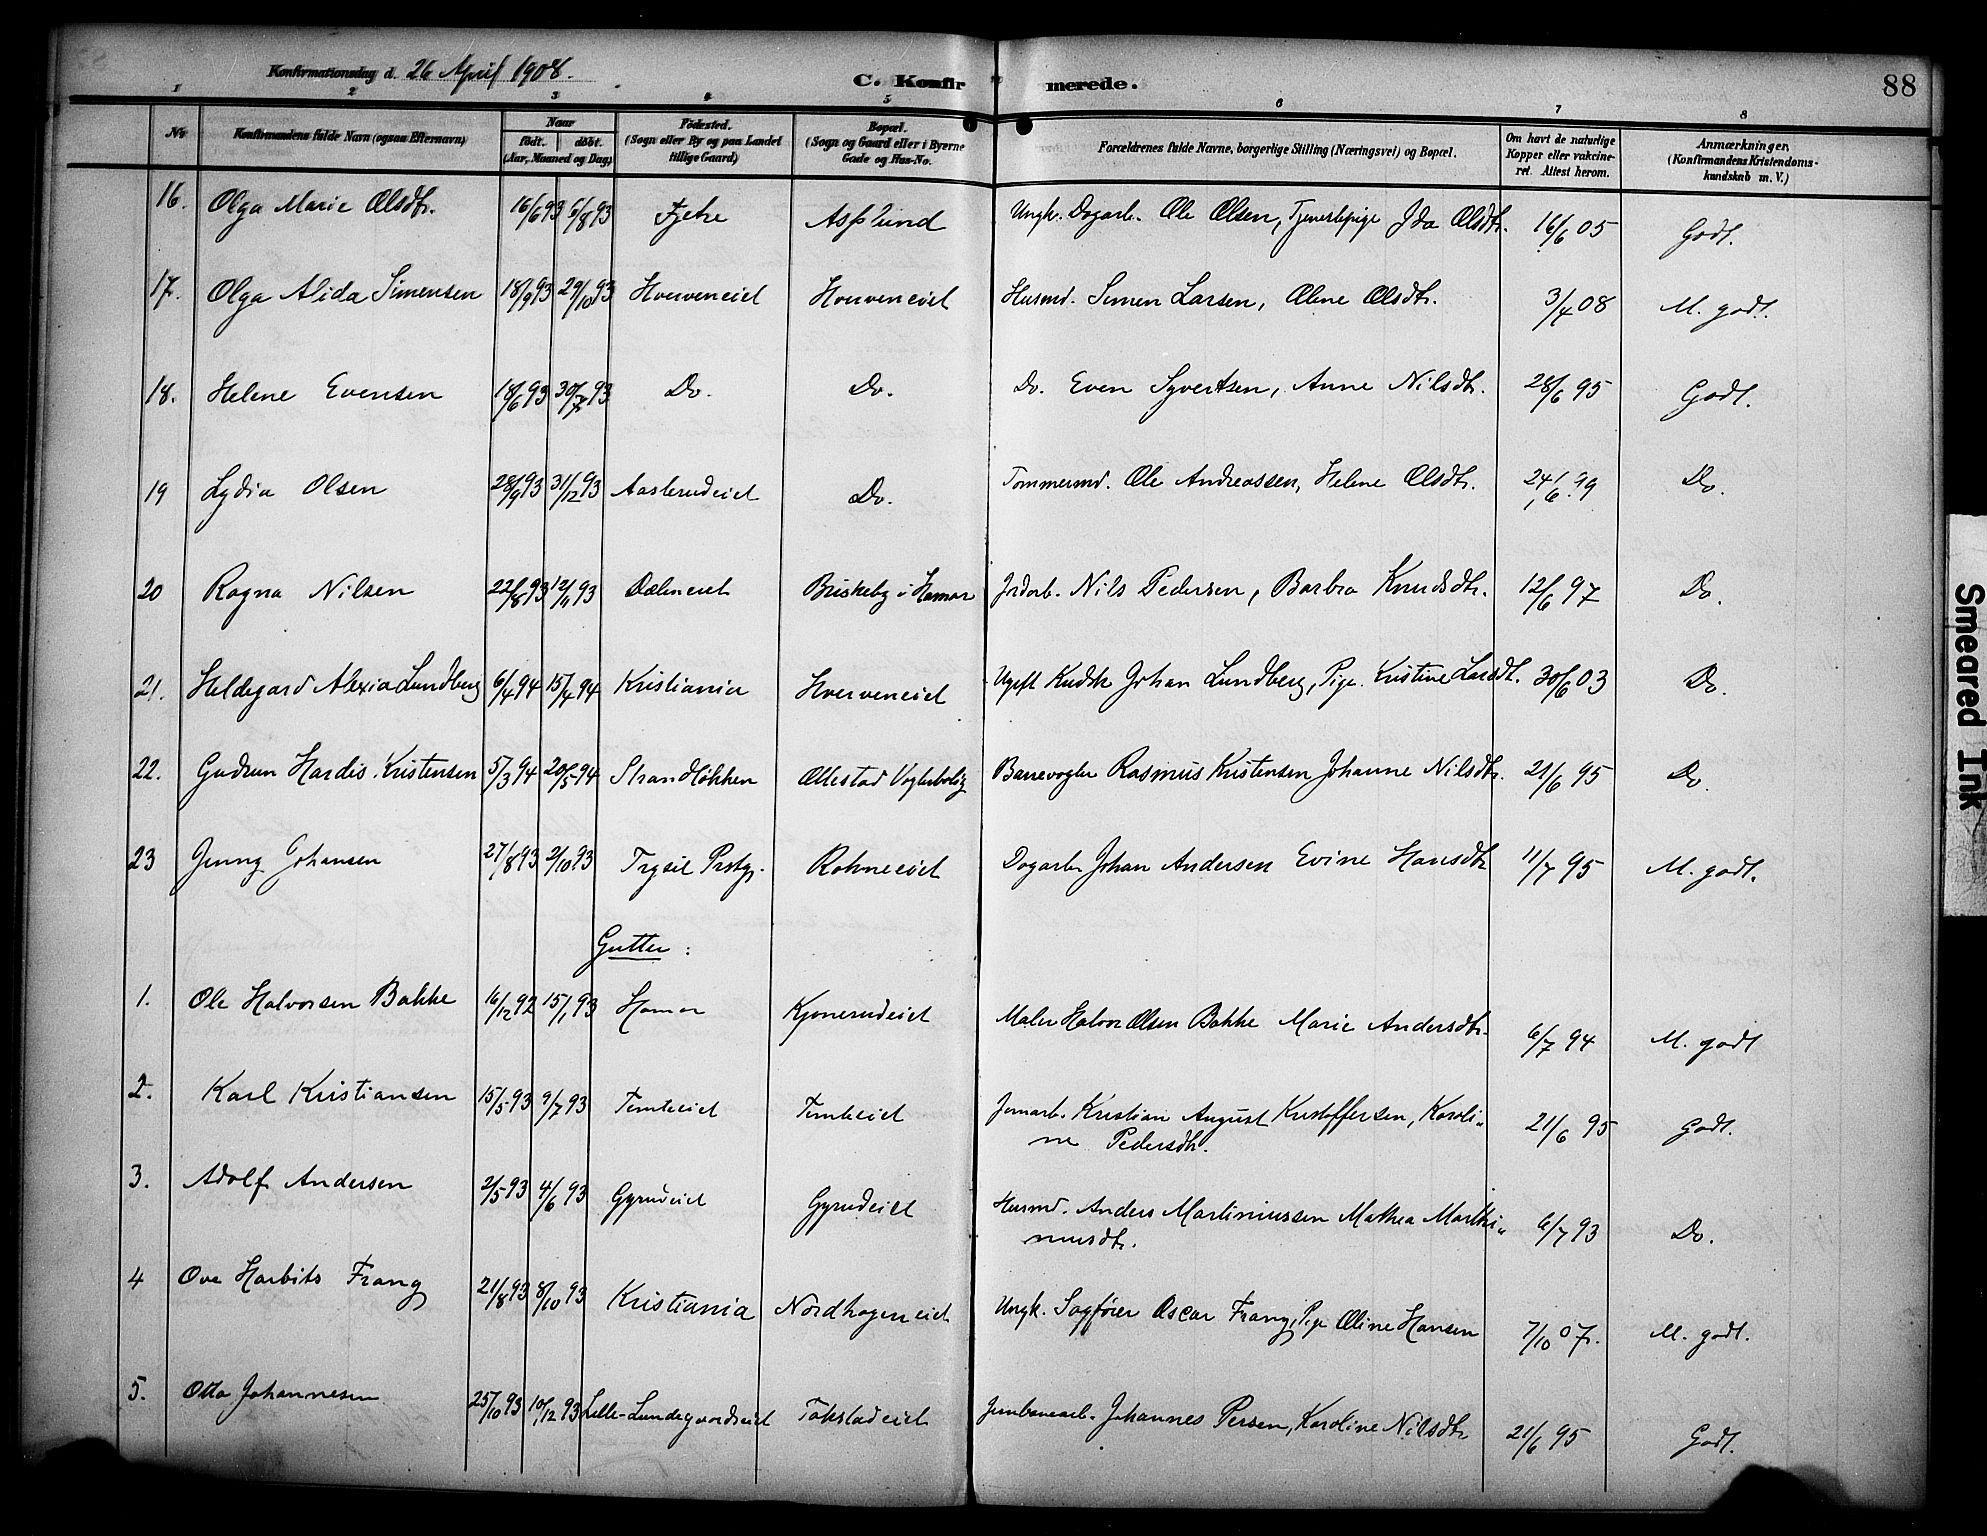 Konfirmationsdag d. 26 April 1908.
C. Konfirmerede.
88
1 2 3 4 5 6 7 8
No Konfirmandens fulde Navn (ogsaa Efternavn) Naar født. døbt. (Aar, Maaned og Dag) Fødested. (Sogn eller By og paa Landet tillige Gaard) Bopæl. (Sogn og Gaard eller i Byerne Gade og Hus-No. Forældrenes fulde Navne, borgerlige Stilling (Næringsvei) og Bopæl. Om havt de naturlige Kopper eller vakcineret. Attest herom. Anmærkninger. (Konfirmandens Kristendomskundskab m. V.)
16. Olga Marie Olsdtr. 16/6 93 6/8 93 Fjetre Asplund Ungk. Dagarb. Ole Olsen, Tjenestepige Ida Olsdtr. 16/6 05 Godt.
17. Olga Alida Simensen 18/9 93 29/10 93 Hverveneiet Hverveneiet Husmd. Simen Larsen, Oline Olsdtr. 3/4 08 M. godt.
18. Helene Evensen 18/6 93 30/7 93 Do. Do. Do. Even Syvertsen, Anne Nilsdtr. 28/6 95 Godt.
19 Lydia Olsen 28/9 93 31/12 93 Aasterudeiet Do. Tømmermd. Ole Andreassen, Helene Olsdtr. 24/6 99 Do.
20 Ragna Nilsen 22/8 93 12/11 93 Dæleneiet Briskeby i Hamar Jordarb. Nils Pedersen, Barbra Knudsdtr. 12/6 97 Do.
21. Hildegard Alexia Lundberg 6/4 94 15/4 94 Kristiania Hverveneiet Ugift Kudsk Johan Lundberg, Pige Kristine Larsdt. 30/6 03 Do.
22. Gudrun Hardis Kristensen 5/3 94 20/5 94 Strandløkken Ottestad Vogterbolig Banevogter Rasmus Kristensen Johanne Nilsdtr. 21/6 95 Do.
23 Jenny Johansen 27/8 93 2/10 93 Trysil Prstgj. Rohneeiet Dagarb. Johan Andersen Evine Hansdtr 11/7 95 M. godt.
Gutter:
1. Ole Halvorsen Bakke 16/12 92 15/1 93 Hamar Kjonerudeiet Maler Halvor Olsen Bakke Marie Andersdtr. 6/7 94 M. godt
2. Karl Kristiansen 15/5 93 9/7 93 Temteeiet Temteeiet Jernarb. Kristian August Kristoffersen, Karoli-
ne Pedersdtr. 21/6 95 Godt.
3. Adolf Andersen 2/5 93 4/6 93 Gyrudeiet Gyrudeiet Husmd. Anders Martiniussen Mathea Marthi-
nusdtr. 6/7 93 Do.
4 Ove Harbits Frang 21/8 93 8/10 93 Kristiania Nordhageneiet Ungk. Sagfører Oscar Frang, Pige Oline Hansen 7/10 07. M. godt.
5. Otto Johannesen 25/10 93 10/12 93 Lille-Lundegaardseiet Tokstadeiet Jernbanearb. Johannes Persen, Karoline Nilsdtr 21/6 95 Godt.
Smeared Ink